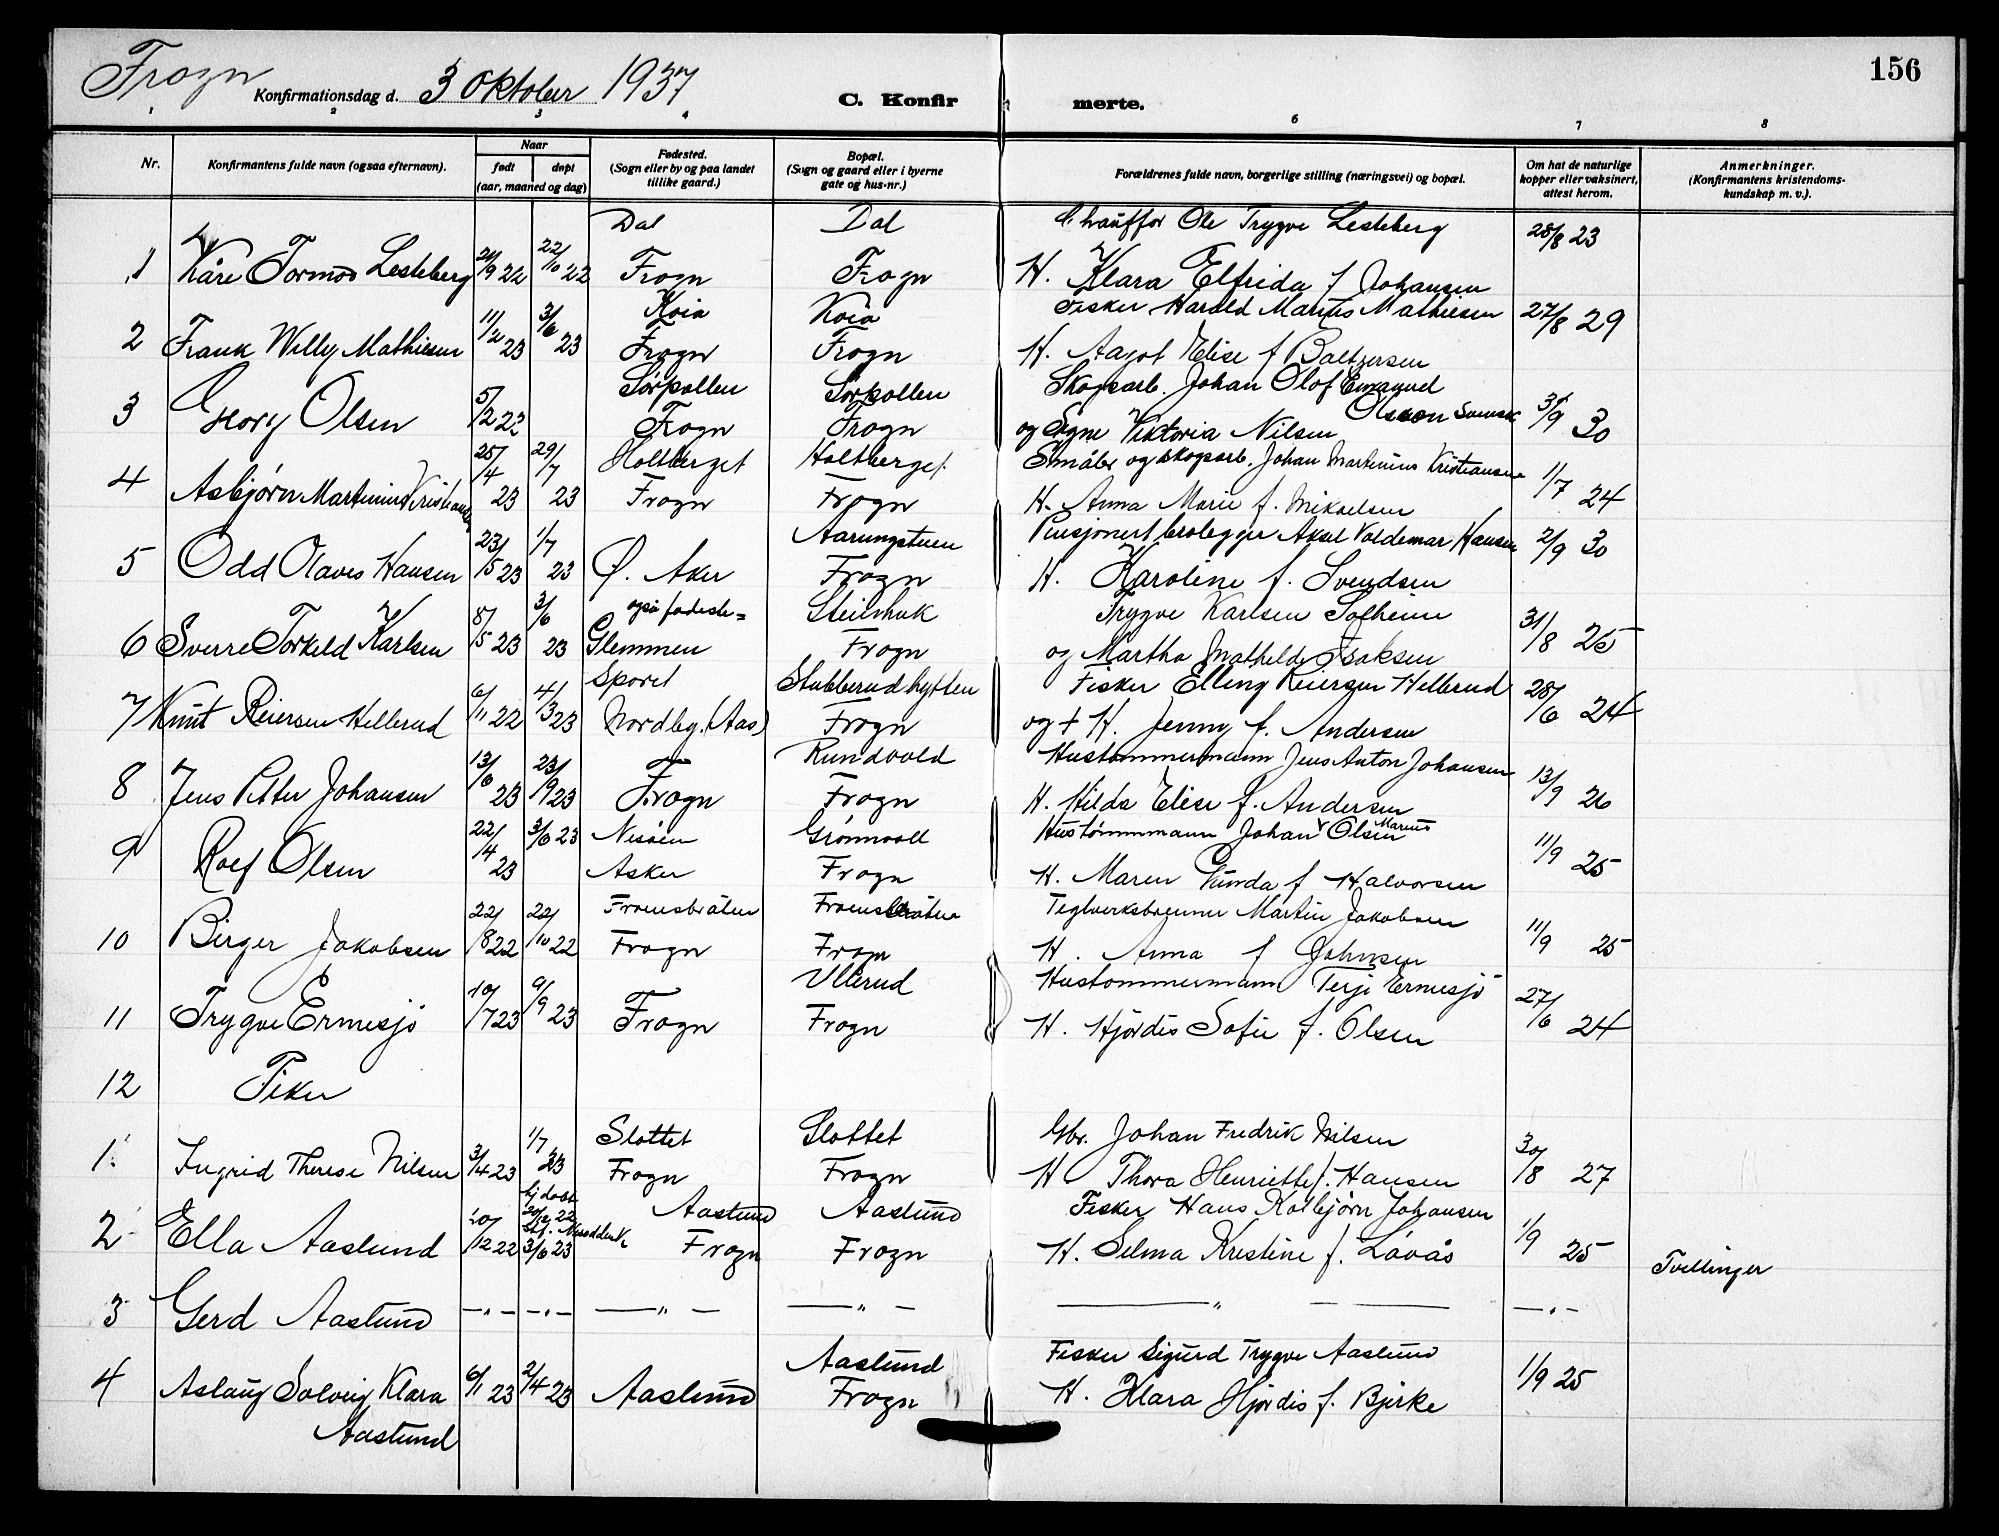 Frogn Konfirmationsdag d. 3 Oktober 1937 C. Konfirmerte. 156
1 2 3 4 6 7 8
Nr. Konfirmantens fulde navn (ogsaa efternavn). Naar født døpt (aar, maaned og dag) Fødested. (Sogn eller by og paa landet tillike gaard.) Bopæl. (Sogn og gaard eller i byerne gate og hus-nr.) Forældrenes fulde navn, borgerlige stilling (næringsvei) og bopæl. Om hat de naturlige kopper eller vaksinert, attest herom. Anmerkninger. (Konfirmantens kristendoms- kundskap m. v.).
Dal Dal Chauffør Ole Trygve Lesteberg 28/8 23
1 Kåre Tormod Lesteberg 22 22/10 22 Frogn Frogn H. Klara Elfrida f Johansen
Koia Koia Fisker Harald Marius Mathiesen 27/8 29
2 Frank Willy Mathiesen 11/2 23 3/6 23 Frogn Frogn H. Aagot Elise f Baltzersen
Sørpollen Sørpollen Skogsarb. Johan Olof Emanuel
3 Georg Olsen 5/2 22 Frogn Frogn og Signe Viktoria Nilsen Olsson Svensk 30
Holtberget Holtberget Småbr og skogsarb. Johan Martinius Kristiansen 1/7 24
4 Asbjørn Martinius Kristiansen 25/4 23 29/7 23 Frogn Frogn H. Anna Marie f. Mikaelsen
Aarungstuen Pensjonert brolegger Aksel Valdemar Hansen 2/9 30
5 Odd Olaves Hansen 23/5 23 1/7 23 Ø. Aker Frogn H. Karoline f. Svendsen
også fødeste= Steilshuk Trygve Karlsen Solheim 31/8 25
6 Sverre Torkeld Karlsen 8/5 23 3/6 23 Glemmen Frogn og Martha Mathilde Isaksen
Sporet Stubberudhytten Fisker Elling Reiersen Hellerud 28/6 24
7 Knut Reiersen Hellerud 6/11 22 4/3 23 Nordby. (Aas) Frogn og + H. Jenny f. Andersen
Rundvold Hustømmermann Jens Anton Johansen 13/9 26
8 Jens Petter Johansen 13/6 23 23/9 23 Frogn Frogn H. Hilda Elise f. Andersen
Nesøen Grønnvoll Hustømmmann Johan Marius Olsen 11/9 25
9 Rolf Olsen 22/4 23 3/6 23 Asker Frogn H. Maren Gunda f Halvorsen
Froensbråten Froensbråten Teglverksbrenner Martin Jakobsen 11/9 25
10 Birger Jakobsen 22/8 22 22/10 22 Frogn Frogn H. Anna f Johnsen
Ullerud Hustommermann Terje Ermesjø 27/6 24
11 Trygve Ermesjø 10/7 23 9/9 23 Frogn Frogn H. Hjørdis Sofie f. Olsen
12 Piker
Slottet Slottet Gbr. Johan Fredrik Nilsen 30/8 27
1. Ingrid Therese Nilsen 3/4 23 1/7 23 Frogn Frogn H Thora Henriette f. Hansen
hj døbt 20/12 22 Aaslund Aaslund Fisker Hans Kolbjørn Johansen 1/9 25
2 Ella Aaslund 20/12 22 3/6 23 Frogn Frogn H. Selma Kristine f. Løvås Tvillinger
3 Gerd Aaslund — " — — " — — " — — " — — " — — " —
Aaslund Fisker Sigurd Trygve Aaslund 1/9 25
4 Aslaug Solveig Klara 6/1 23 2/4 23 Aaslund Frogn H. Klara Hjørdis f. Bjerke
Aaslund